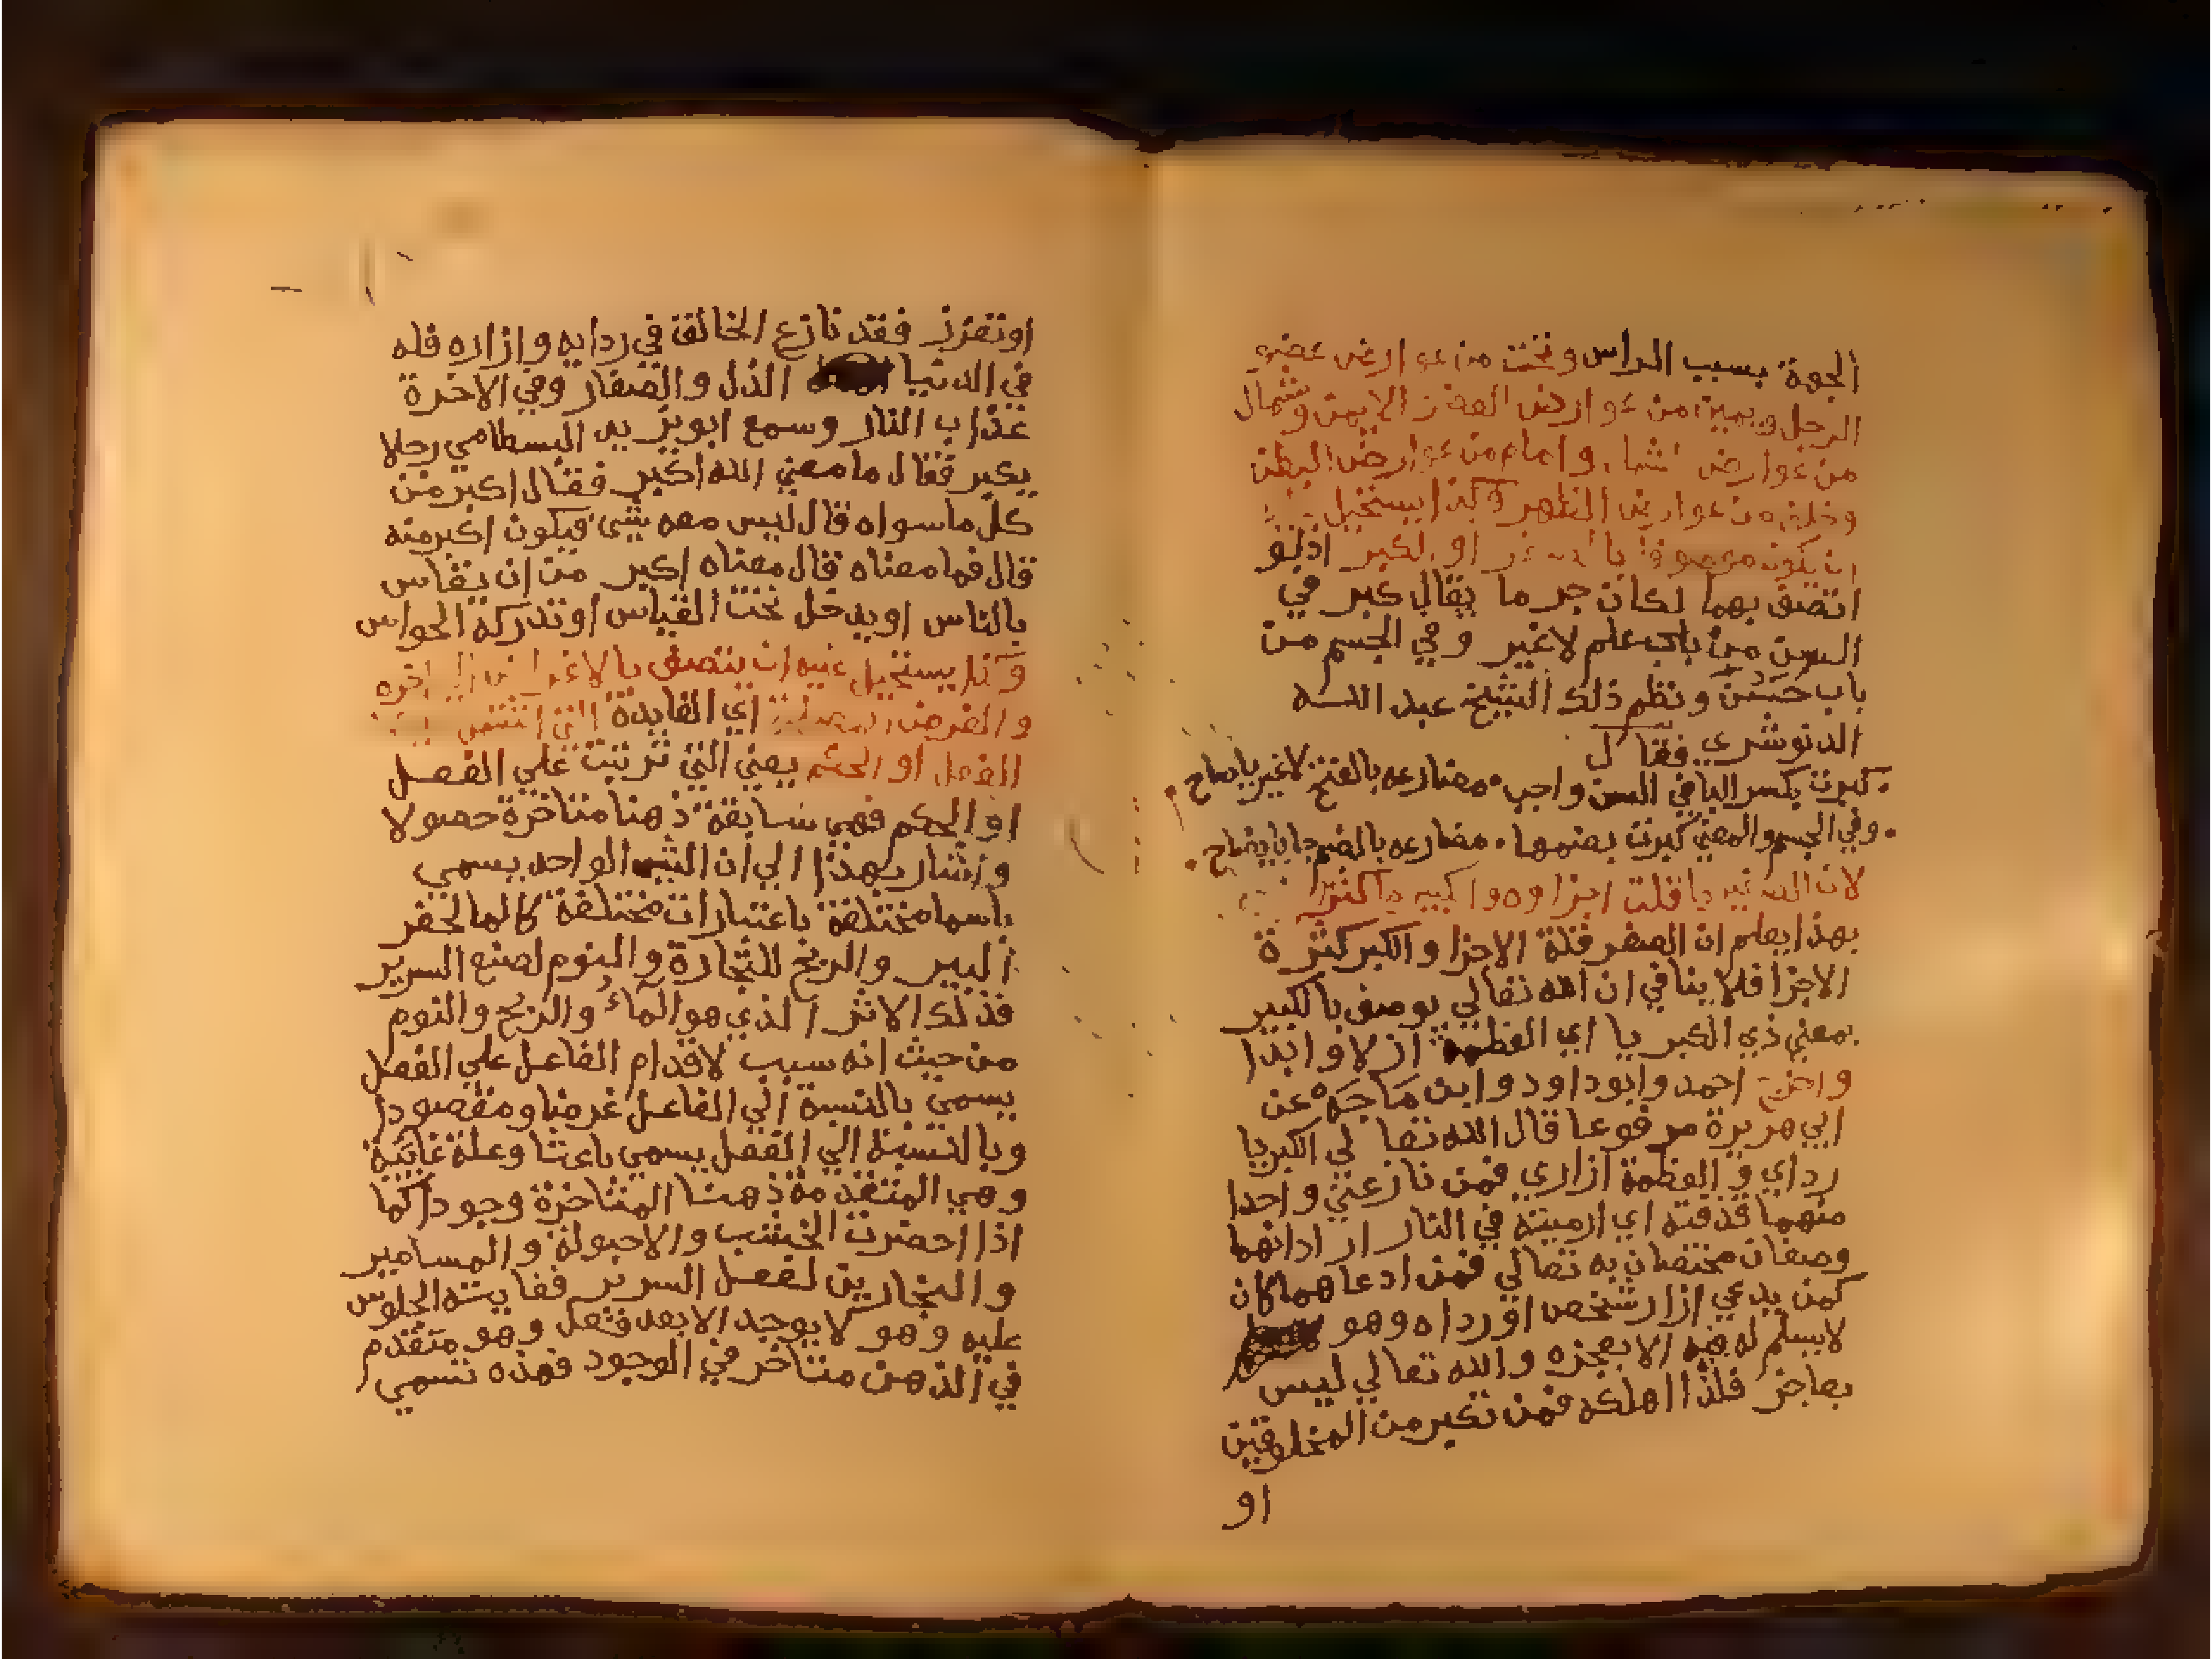 الجهة بسبب الراس وتحت من عوارض عضو
الرجل ويمين من عوارض العضو الايمن وشمال
من عوارض الشمال وامام من عوارض البطن
وخلف من عوارض الظهر وكذا يستحيل
ان يكون موصوفا بالصغر او الكبر اذ لو
اتصف بهما لكان جرما يقال كبر في
السن من باب علم لاغير وفي الجسم من
باب حسن ونظم ذلك الشيخ عبد الله
الدنوشري فقال
كبرت بكسر البا في السن واجب مضارعه بالفتح لاغير ياصاح
وفي الجسم والمعني كبرت بضمها مضارعه بالضم جا بايضاح
لان الصغير ما قلت اجزاوه والكبير ما كثرت
بهذا يعلم ان الصغر قلة الاجزا والكبر كثرة
الاجزا فلا ينافي ان الله تعالي يوصف بالكبير
بمعني ذي الكبريا اي العظمة ازلا وابدا
واخرج احمد وابوداود وابن مَاجَهْ عن
ابي هريرة مرفوعا قال الله تعالي الكبريا
رداي والعظمة ازاري فمن نازعني واحدا
منهما قذفته اي ارميته في النار اراد انهما
وصفان مختصان به تعالي فمن ادعاهما كان
كمن يدعي ازار شخص او رداه وهو
لا يسلم له فيه الا بعجزه والله تعالي ليس
بعاجز فلذا اهلكه فمن تكبر من المخلوقين
او
اوتعزز فقد نازع الخالق في ردايه وازاره فله
في الدنيا الذل والصغار وفي الاخرة
عذاب النار وسمع ابويزيد البسطامي رجلا
يكبر فقال ما معني الله اكبر فقال اكبر من
كل ماسواه قال ليس معه شي فيكون اكبر منه
قال فما معناه قال معناه اكبر من ان يقاس
بالناس او يدخل تحت القياس او تدركه الحواس
وكذا يستحيل عليه ان يتصف بالاغراض الي اخره
والغرض المصلحة اي الفايدة التي اشتمل
الفعل او الحكم يعني التي ترتبت علي الفعل
او الحكم فهي سابقة ذهنا متاخرة حصولا
واشار بهذا الي ان الشي الواحد يسمي
باسما مختلفة باعتبارات مختلفة كالما لحفر
البير والربح للتجارة والنوم لصنع السرير
فذلك الاثر الذي هو الماء والربح والنوم
من حيث انه سبب لاقدام الفاعل علي الفعل
يسمي بالنسبة الي الفاعل غرضا ومقصودا
وبالنسبة الي الفعل يسمي باعثا وعلة غائية
وهي المتقدمة ذهنا المتاخرة وجودا كما
اذا احضرت الخشب والاحبولة والمسامير
والنجارين لفعل السرير فغايته الجلوس
عليه وهو لا يوجد الا بعد فعل وهو متقدم
في الذهن متاخر في الوجود فهذه تسمي